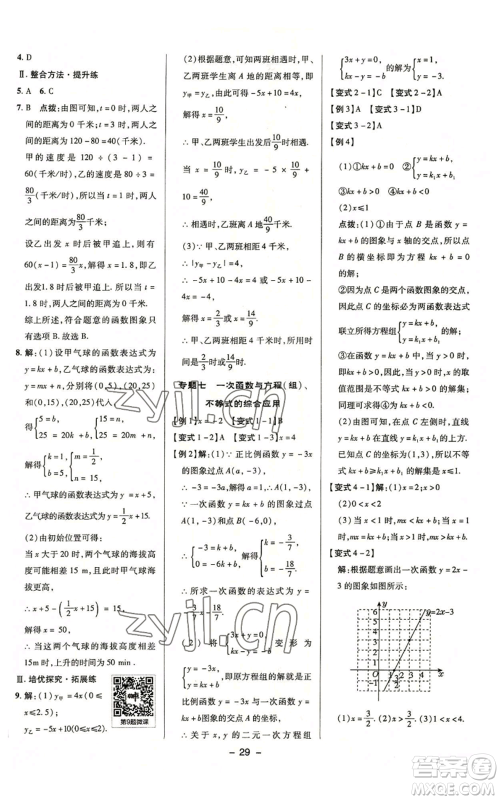 4. D
Ⅱ. 整合方法·提升练
5. A　6. C
7. B　点拨：由题可知，t = 0 时，两人之
间的距离为 120 千米.
甲的速度是 120 ÷ (3 - 1) =
60(千米/时)，乙的速度是 80 ÷ 3 =
80/3(千米/时). 所以当 t = 1 时，两
人之间的距离为 80/3 千米.
设乙出发 x 时被甲追上，则有
60(x - 1) = 80/3 x，解得 x = 1.8.
所以乙出发 1.8 时被甲追上，即 t =
1.8 时，两人之间的距离为 0 千米.
综上所述，符合题意的函数图象只
有选项 B. 故选 B.
8. 解：(1)设甲气球的函数表达式为
y = kx + b，乙气球的函数表达式为
y = mx + n，分别将(0,5)，(20,25)
和(0,15)，(20,25)代入，
得{5 = b, 25 = 20k + b, {15 = n, 25 = 20m + n,
解得{k = 1, b = 5, {m = 1/2, n = 15.
∴ 甲气球的函数表达式为 y = x + 5，
乙气球的函数表达式为 y = 1/2 x + 15.
(2)由初始位置可得：
当 x 大于 20 时，两个气球的海拔高
度可能相差 15 m，且此时甲气球海
拔更高，
∴ x + 5 - (1/2 x + 15) = 15，
解得 x = 50，
∴ 当这两个气球的海拔高度相差
15m 时，上升的时间为 50 min.
Ⅲ. 培优探究·拓展练
9. 解：(1) y甲 = 4x(0 ≤
x ≤ 2.5)，
y乙 = -5x + 10(0 ≤
x ≤ 2).
第9题微课
(2)根据题意，可知两班相遇时，
甲、乙两班学生离开 A 地的距离相
等，即 y甲 = y乙，∴ -5x + 10 = 4x，
解得 x = 10/9.
∴ 甲、乙两班学生出发后 10/9 时相遇.
当 x = 10/9 时，y乙 = -5x + 10 =
-5 × 10/9 + 10 = 40/9.
∴ 相遇时，乙班离 A 地 40/9 千米.
(3)∵ 甲、乙两班相距 4 千米，
∴ |y甲 - y乙| = 4.
∴ -5x + 10 - 4x = ±4，
∴ x = 2/3 或 x = 14/9.
∴ 甲、乙两班相距 4 千米时所用时
间是 2/3 时或 14/9 时.
专题七　一次函数与方程(组)、
不等式的综合应用
【例 1】x = -2　【变式 1-1】(4)
【变式 1-2】A
【例 2】解：∵ 正比例函数 y = -3x
的图象过点 A(a, -3)，
∴ -3 = -3a，∴ a = 1，∴ A(1, -3).
∵ 一次函数 y = kx + b 的图象过
点 A(1, -3)和点 B(-6,0)，
∴ {-3 = k + b, 0 = -6k + b, 解得{k = -3/7, b = -18/7.
∴ 所求一次函数的表达式为 y =
-3/7 x - 18/7.
(2) 将 {y = -3x, y = kx + b 变形得 {3x + y = 0, kx - y = -b,
即原方程组的解就是正
比例函数 y = -3x 与一次函数 y =
kx + b 的图象的交点坐标.
∴ 关于 x，y 的二元一次方程组
{3x + y = 0, kx - y = -b 的解为{x = 1, y = -3.
【变式 2】C
【例 3】A　【变式 3-1】A
【变式 3-2】D
【例 4】
(1)①x = 1　②{y = kx + b, y = k₁x + b₁
③kx + b > 0　④kx + b < 0
(2)x ≤ 1
点拨：(1)①由于点 B 是函数 y =
kx + b 的图象与 x 轴的交点，所以点
B 的横坐标即为方程 kx + b = 0
的解；
②因为点 C 是两个函数图象的交
点，因此点 C 的横、纵坐标的值是
联立所得方程组{y = kx + b, y = k₁x + b₁ 的解；
③④函数 y = kx + b 中，当 y > 0
时，kx + b > 0，因此 x 的取值范围是
不等式 kx + b > 0 的解集；同理可
求得不等式 kx + b < 0 的解集.
(2)由题图可知，在 C 点左侧时，直
线 y = kx + b 的函数值不小于直线
y = k₁x + b₁ 的函数值，即不等式
kx + b ≥ k₁x + b₁ 的解集是 x ≤ 1.
【变式 4-1】(1)x = 1
(2)0 < x < 2
(3)①当 x = 1 时，mx = kx + b；
②当 x > 1 时，mx < kx + b；
③当 x < 1 时，mx > kx + b.
【变式 4-2】
解：根据题意画出一次函数 y = 2x -
3 的图象如图所示：
y = 2x - 3
(1)x = 3/2　(2)x > 3/2　(3)x < 3/2
- 29 -
zyjl.cn